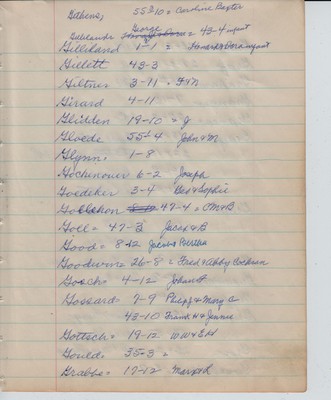 Githens, 55½-10 = Caroline Baxter
George
Gulilander = 43-4 infant
Gilliland 1-1 = Howard & Vera infant
Gillett 43-3
Giltner 3-11 = F & N
Girard 4-11
Glidden 19-10 = J
Gloede 55-4 John & M
Glynn 1-8
Gochenour 6-2 Joseph
Goedeker 3-4 Geo & Sophie
47-4 = OM & B
Goll = 47-3 Jacob & B
Good = 8-12
Goodwin = 26-8 = Fred & Abby Cochran
Gosch = 4-12 John H
Gossard 7-9 Philip & Mary C
43-10 Frank H & Jennie
Gottsch = 19-12 WW & EH
Gould = 35-3 =
Grabbe = 17-12